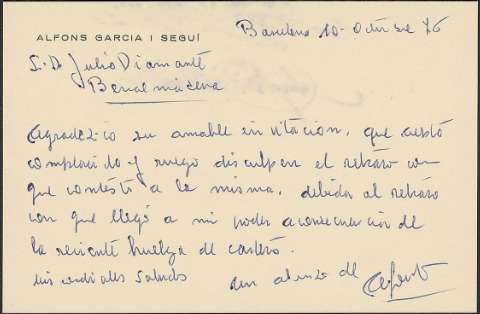 ALFONS GARCIA I SEGUÍ
Barcelona 10-Octubre 76
S. D. Julio Diamanté
Benalmádena
Agradezco su amable invitación, que acepto
complacido y ruego disculpen el retraso con
que contesto a la misma, debido al retraso
con que llegó a mi poder a consecuencia de
la reciente huelga de carteros.
mis cordiales saludos
un abrazo de